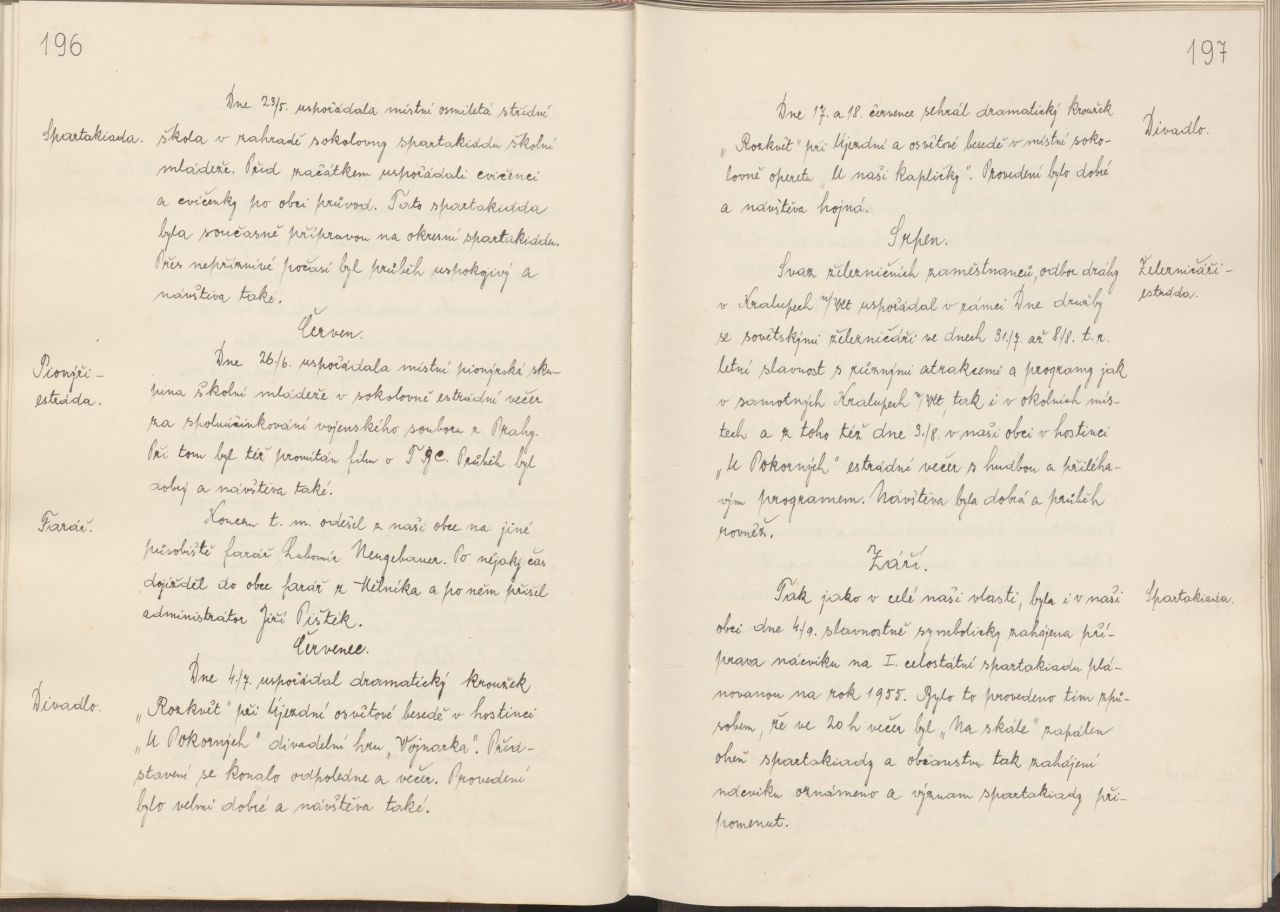 196
Dne 23/5. uspořádala místní osmiletá střední
Spartakiada. škola v zahradě sokolovny spartakiádu školní
mládeže. Před začátkem uspořádali cvičenci
a cvičenky po obci průvod. Tato spartakiáda
byla současně přípravou na okresní spartakiádu.
Přes nepříznivé počasí byl průběh uspokojivý a
návštěva také.
Červen.
Pionýři –
estráda.
Dne 26./6. uspořádala místní pionýrská sku-
pina školní mládeže v sokolovně estrádní večer
za spoluúčinkování vojenského souboru z Prahy.
Při tom byl též promítán film o Praze. Průběh byl
dobrý a návštěva také.
Farář.
Koncem t. m. odešel z naší obce na jiné
působiště farář Lubomír Neugebauer. Po nějaký čas
dojížděl do obce farář z Mělníka a po něm přišel
administrátor Jiří Pištěk.
Červenec.
Divadlo.
Dne 4./7. uspořádal dramatický kroužek
„Rozkvět" při Újezdní osvětové besedě v hostinci
„U Pokorných" divadelní hru „Vojnarka". Před-
stavení se konalo odpoledne a večer. Provedení
bylo velmi dobré a návštěva také.
197
Dne 17. a 18. července sehrál dramatický kroužek
Divadlo.
„Rozkvět" při Újezdní a osvětové besedě v místní soko-
lovně operetu „U naší kapličky". Provedení bylo dobré
a návštěva hojná.
Srpen.
Svaz železničních zaměstnanců, odbor dráhy
Železničáři –
estráda.
v Kralupech n/Vlt uspořádal v rámci Dne družby
se sovětskými železničáři ve dnech 31./7. až 8/8. t. r.
letní slavnost s různými atrakcemi a programy jak
v samotných Kralupech n/Vlt, tak i v okolních mís-
tech a z toho též dne 3./8. v naší obci v hostinci
„U Pokorných" estrádní večer s hudbou a přiléha-
vým programem. Návštěva byla dobrá a průběh
rovněž.
Září.
Tak jako v celé naší vlasti, byla i v naší
Spartakiada.
obci dne 4./9. slavnostně symbolicky zahájena pří-
prava nácviku na I. celostátní spartakiadu plá-
novanou na rok 1955. Bylo to provedeno tím způ-
sobem, že ve 20 h večer byl „Na skále" zapálen
oheň spartakiady a občanstvu tak zahájení
nácviku oznámeno a význam spartakiady při-
pomenut.